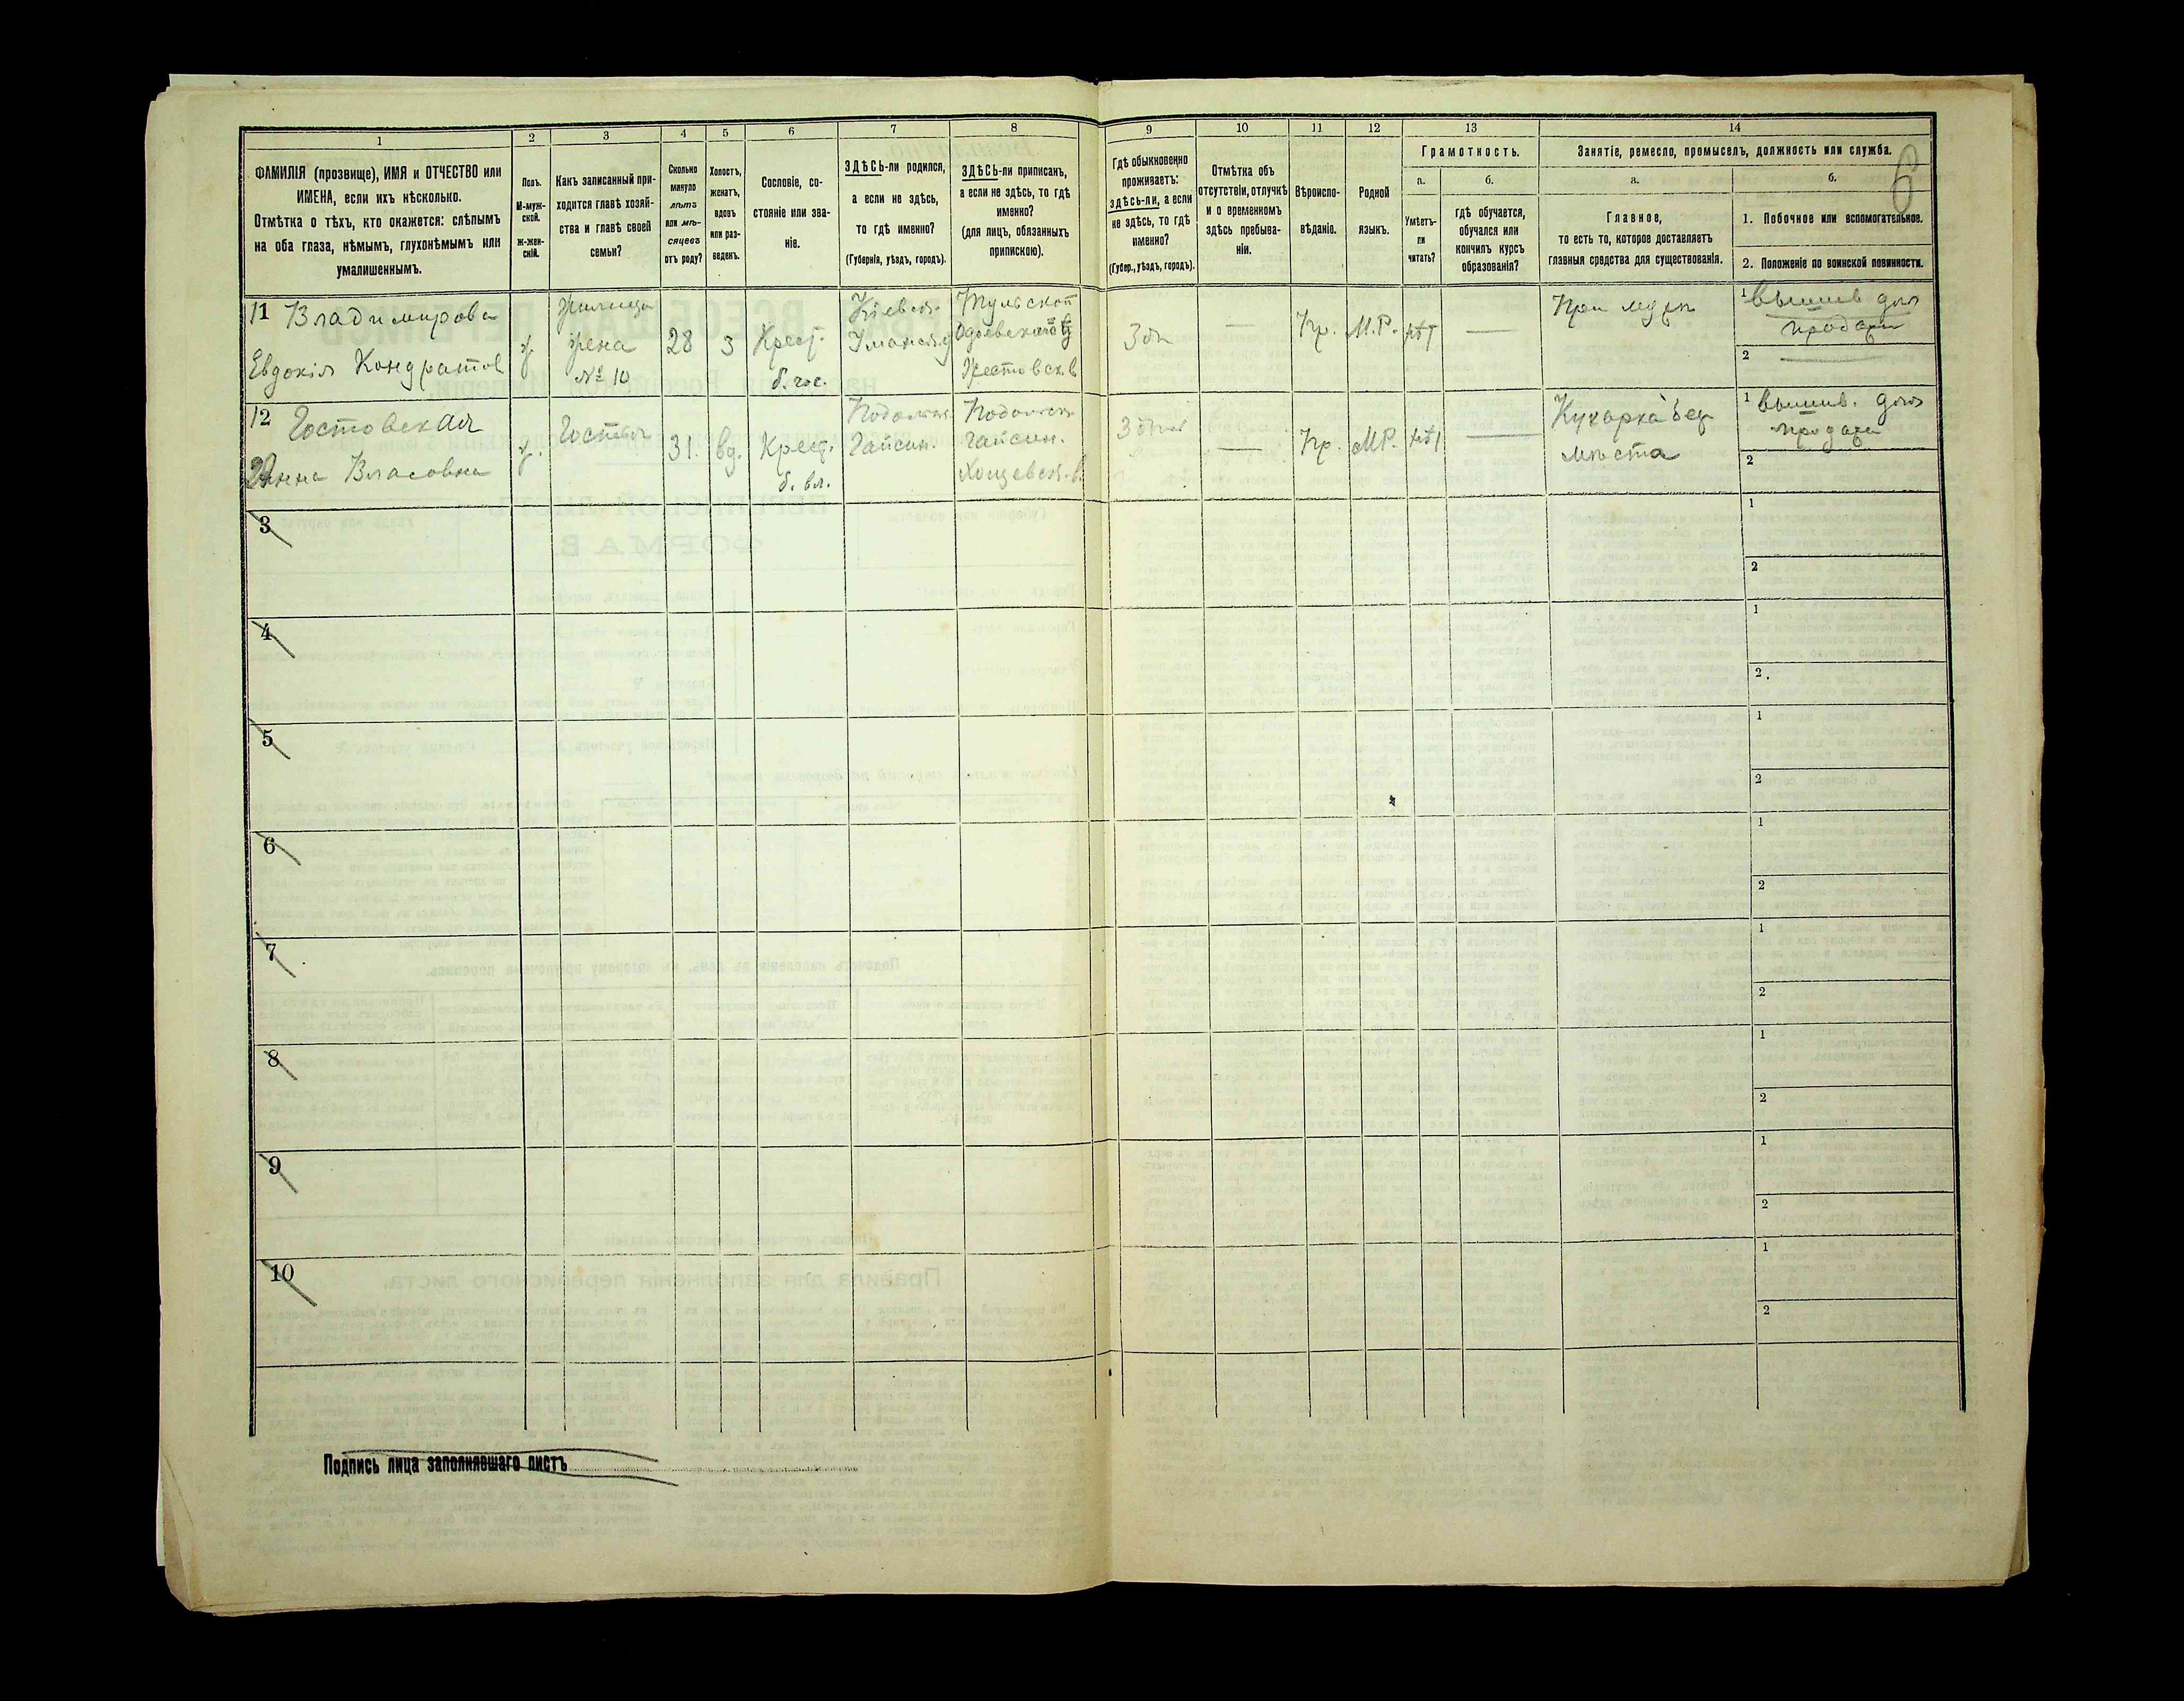 1
2
3
4
5
6
7
8
9
10
11
12
13
14
ФАМИЛІЯ (прозвище), ИМЯ и ОТЧЕСТВО или
ИМЕНА, если ихъ нѣсколько.
Отмѣтка о тѣхъ, кто окажется: слѣпымъ
на оба глаза, нѣмымъ, глухонѣмымъ или
умалишеннымъ.
Полъ.
М-муж-
ской.
ж-жен-
скій.
Какъ записанный при-
ходится главѣ хозяй-
ства и главѣ своей
семьи?
Сколько
минуло
лѣтъ
или мѣ-
сяцевъ
отъ роду?
Холостъ,
женатъ,
вдовъ
или раз-
веденъ.
Сословіе, со-
стояніе или зва-
ніе.
ЗДѢСЬ-ли родился,
а если не здѣсь,
то гдѣ именно?
(Губернія, уѣздъ, городъ).
ЗДѢСЬ-ли приписанъ,
а если не здѣсь, то гдѣ
именно?
(для лицъ, обязанныхъ
припискою).
Гдѣ обыкновенно
проживаетъ:
здѣсь-ли, а если
не здѣсь, то гдѣ
именно?
(Губер., уѣздъ, городъ).
Отмѣтка объ
отсутствіи, отлучкѣ
и о временномъ
здѣсь пребыва-
ніи.
Вѣроиспо-
вѣданіе.
Родной
языкъ.
Грамотность.
а.
б.
Умѣетъ-
ли
читать?
гдѣ обучается,
обучался или
кончилъ курсъ
образованія?
Занятіе, ремесло, промыселъ, должность или служба.
6
а.
б.
Главное,
то есть то, которое доставляетъ
главныя средства для существованія.
1. Побочное или вспомогательное.
2. Положеніе по воинской повинности.
11 Владимирова
Евдокія Кондратов
ж
жилица
жена
№ 10
28
з
Крест.
б. гос.
Кіевск.
Уманск. у
Тульской
Одоевскаго у
Пр.
М.Р.
нѣт
При мужѣ
1 вышив для
продажи
2
12 Гостовская
Анна Власовна
ж.
31.
вд.
Крест.
б. вл.
Подольск.
Гайсин.
Подольск.
Гайсин.
Пр.
МР.
нѣт
Кухарка без
мѣста
1 вышив. для
продажи
2
3
1
2
4
1
2.
5
1
2
6
1
2
7
1
2
8
1
2
9
1
2
10
1
2
Подпись лица заполнявшаго листъ